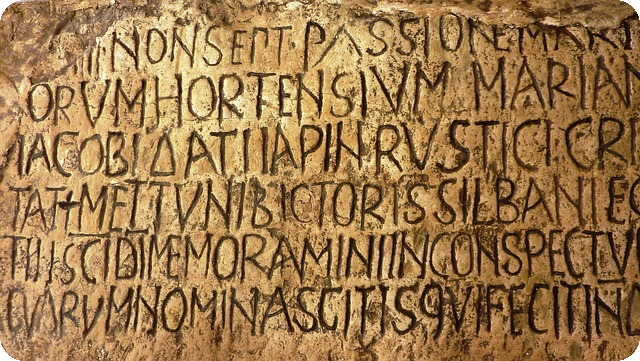 II NONSEPT· PASSIONE MART
ORVMHORTENSIVM MARIAN
IACOBIDATIIAPINRVSTICI CRI
TAT+METTVNIBICTORISSILBANIE
TII+SCIDIMEMORAMINIINCONSPECTV
QVORVMNOMINASCITISQVIFECITIN